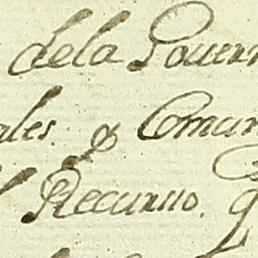 dela Gouern
ales. y Comun
l Recurso. q